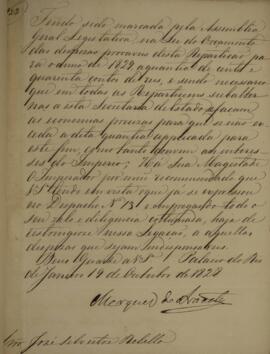 Tendo sido marcada pela Assemblea
Geral Legislativa na Lei do Orçamento
das despezas provaveis desta Repartição pa-
ra o anno de 1829 a quantia de cento e
quarenta contos de reis, e sendo necessario
que em todas as Repartições subalter-
nas a esta Secretaria de Estado se façam
as economias precizas para que se não ex-
ceda a dita quantia applicada para
este fim, como tanto convem aos interes-
ses do Imperio; Ha Sua Magestade
o Imperador por mui recommendado que
VS. tendo em vista o que já se expressou
no Despacho Nº 13 e empregando todo o
seu zelo e diligencia costumada, haja de
restringir nessa Legação, a aquellas
despezas que sejam indispensaveis.
Deus Guarde a VS. Palacio do Rio
de Janeiro 14 de Outubro de 1828
Marquez de Aracaty
Snr. José Silvestre Rebello